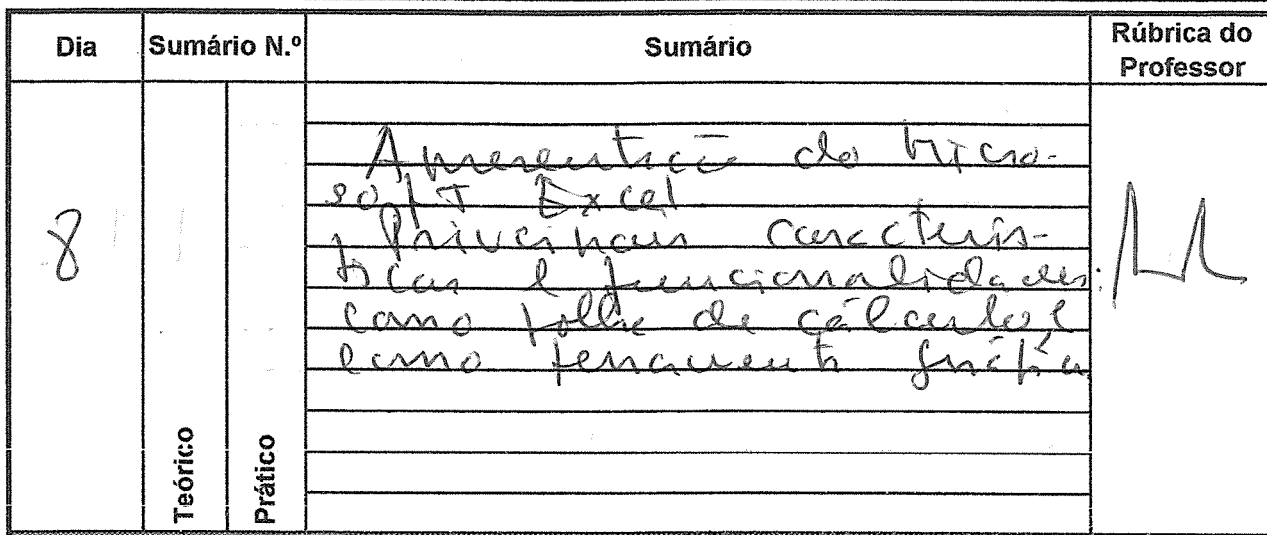 Dia Sumário N.º Sumário Rúbrica do Professor
Teórico Prático
8
Apresentação do Micro-
soft Excel
Principais caracterís-
ticas e funcionalidades:
como folha de cálculo e
como ferramenta gráfica